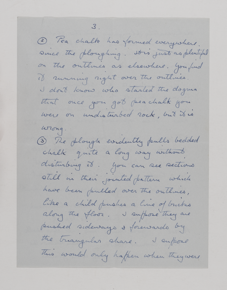 3
① Pea chalk has formed everywhere
since the ploughing. It is just as plentiful
on the outlines as elsewhere. You find
it running right over the outlines.
I don't know who started the dogma
that once you got pea chalk you
were on undisturbed rock, but it is
wrong.
② The plough evidently pulls bedded
chalk quite a long way without
disturbing it. You can see sections
still in their jointed pattern which
have been pulled over the outlines,
like a child pushes a line of bricks
along the floor. I suppose they are
pushed sideways & forwards by
the triangular share. I suppose
this would only happen when they were